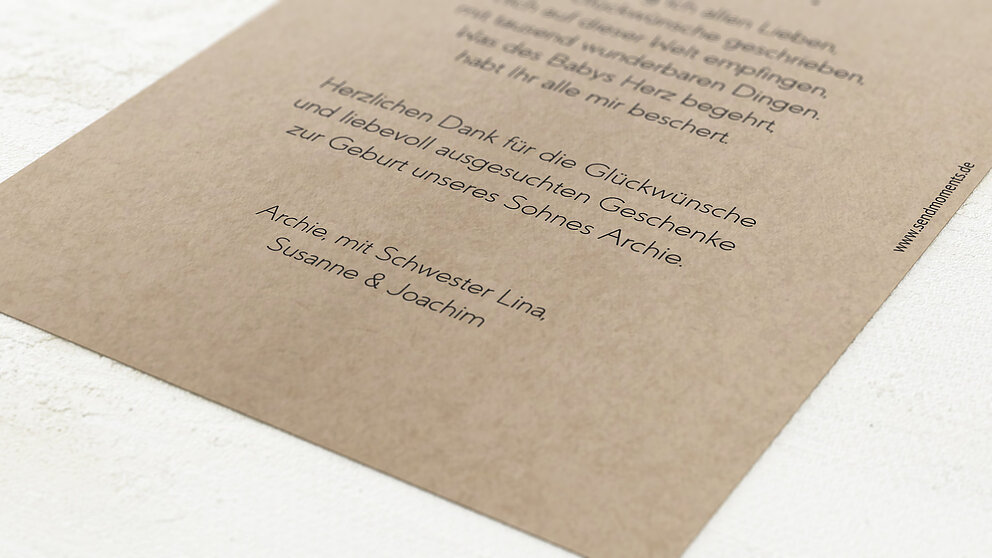 ich allen Lieben,
Glückwünsche geschrieben.
auf dieser Welt empfingen,
mit tausend wunderbaren Dingen.
Was des Babys Herz begehrt,
habt Ihr alle mir beschert.
Herzlichen Dank für die Glückwünsche
und liebevoll ausgesuchten Geschenke
zur Geburt unseres Sohnes Archie.
Archie, mit Schwester Lina,
Susanne & Joachim
www.sendmoments.de